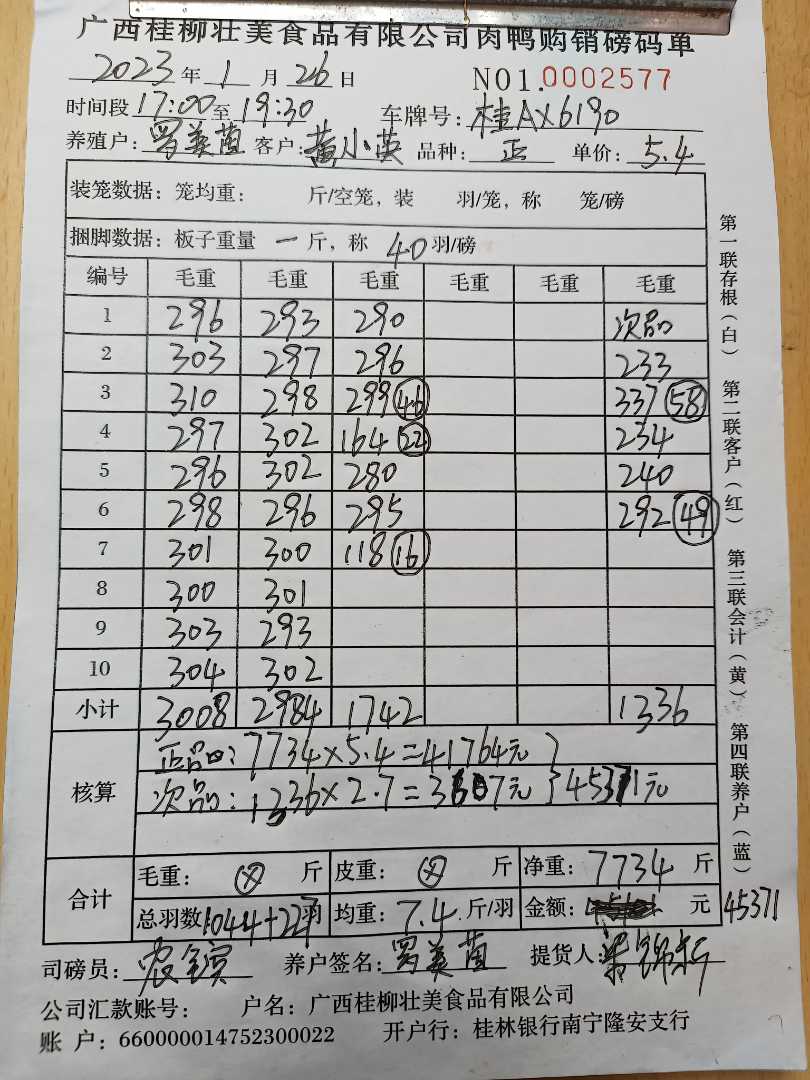 广西桂柳壮美食品有限公司肉鸭购销磅码单
2023年 1月 26日 NO1.0002577
时间段17:00至19:30 车牌号:桂AX6190
养殖户:罗美 客户:黄小英 品种:正 单价:5.4
装笼数据:笼均重: 斤/空笼,装 羽/笼,称 笼/磅
捆脚数据:板子重量 一 斤,称 40羽/磅
编号 毛重 毛重 毛重 毛重 毛重 毛重
1 296 293 290 次品
2 303 297 296 233
3 310 298 299 46 337 58
4 297 302 164 22 234
5 296 302 280 240
6 298 296 295 292 49
7 301 300 118 16
8 300 301
9 303 293
10 304 302
小计 3008 2984 1742 1336
核算 正品:7734×5.4=41764元
次品:1336×2.7=3607元 } 45371元
合计 毛重: 斤 皮重: 斤 净重:7734斤
总羽数1044+227羽 均重:7.4斤/羽 金额: 元 45371
司磅员: 养户签名:罗美 提货人:
公司汇款账号: 户名:广西桂柳壮美食品有限公司
账 户:660000014752300022 开户行:桂林银行南宁隆安支行
第一联存根(白) 第二联客户(红) 第三联会计(黄) 第四联养户(蓝)